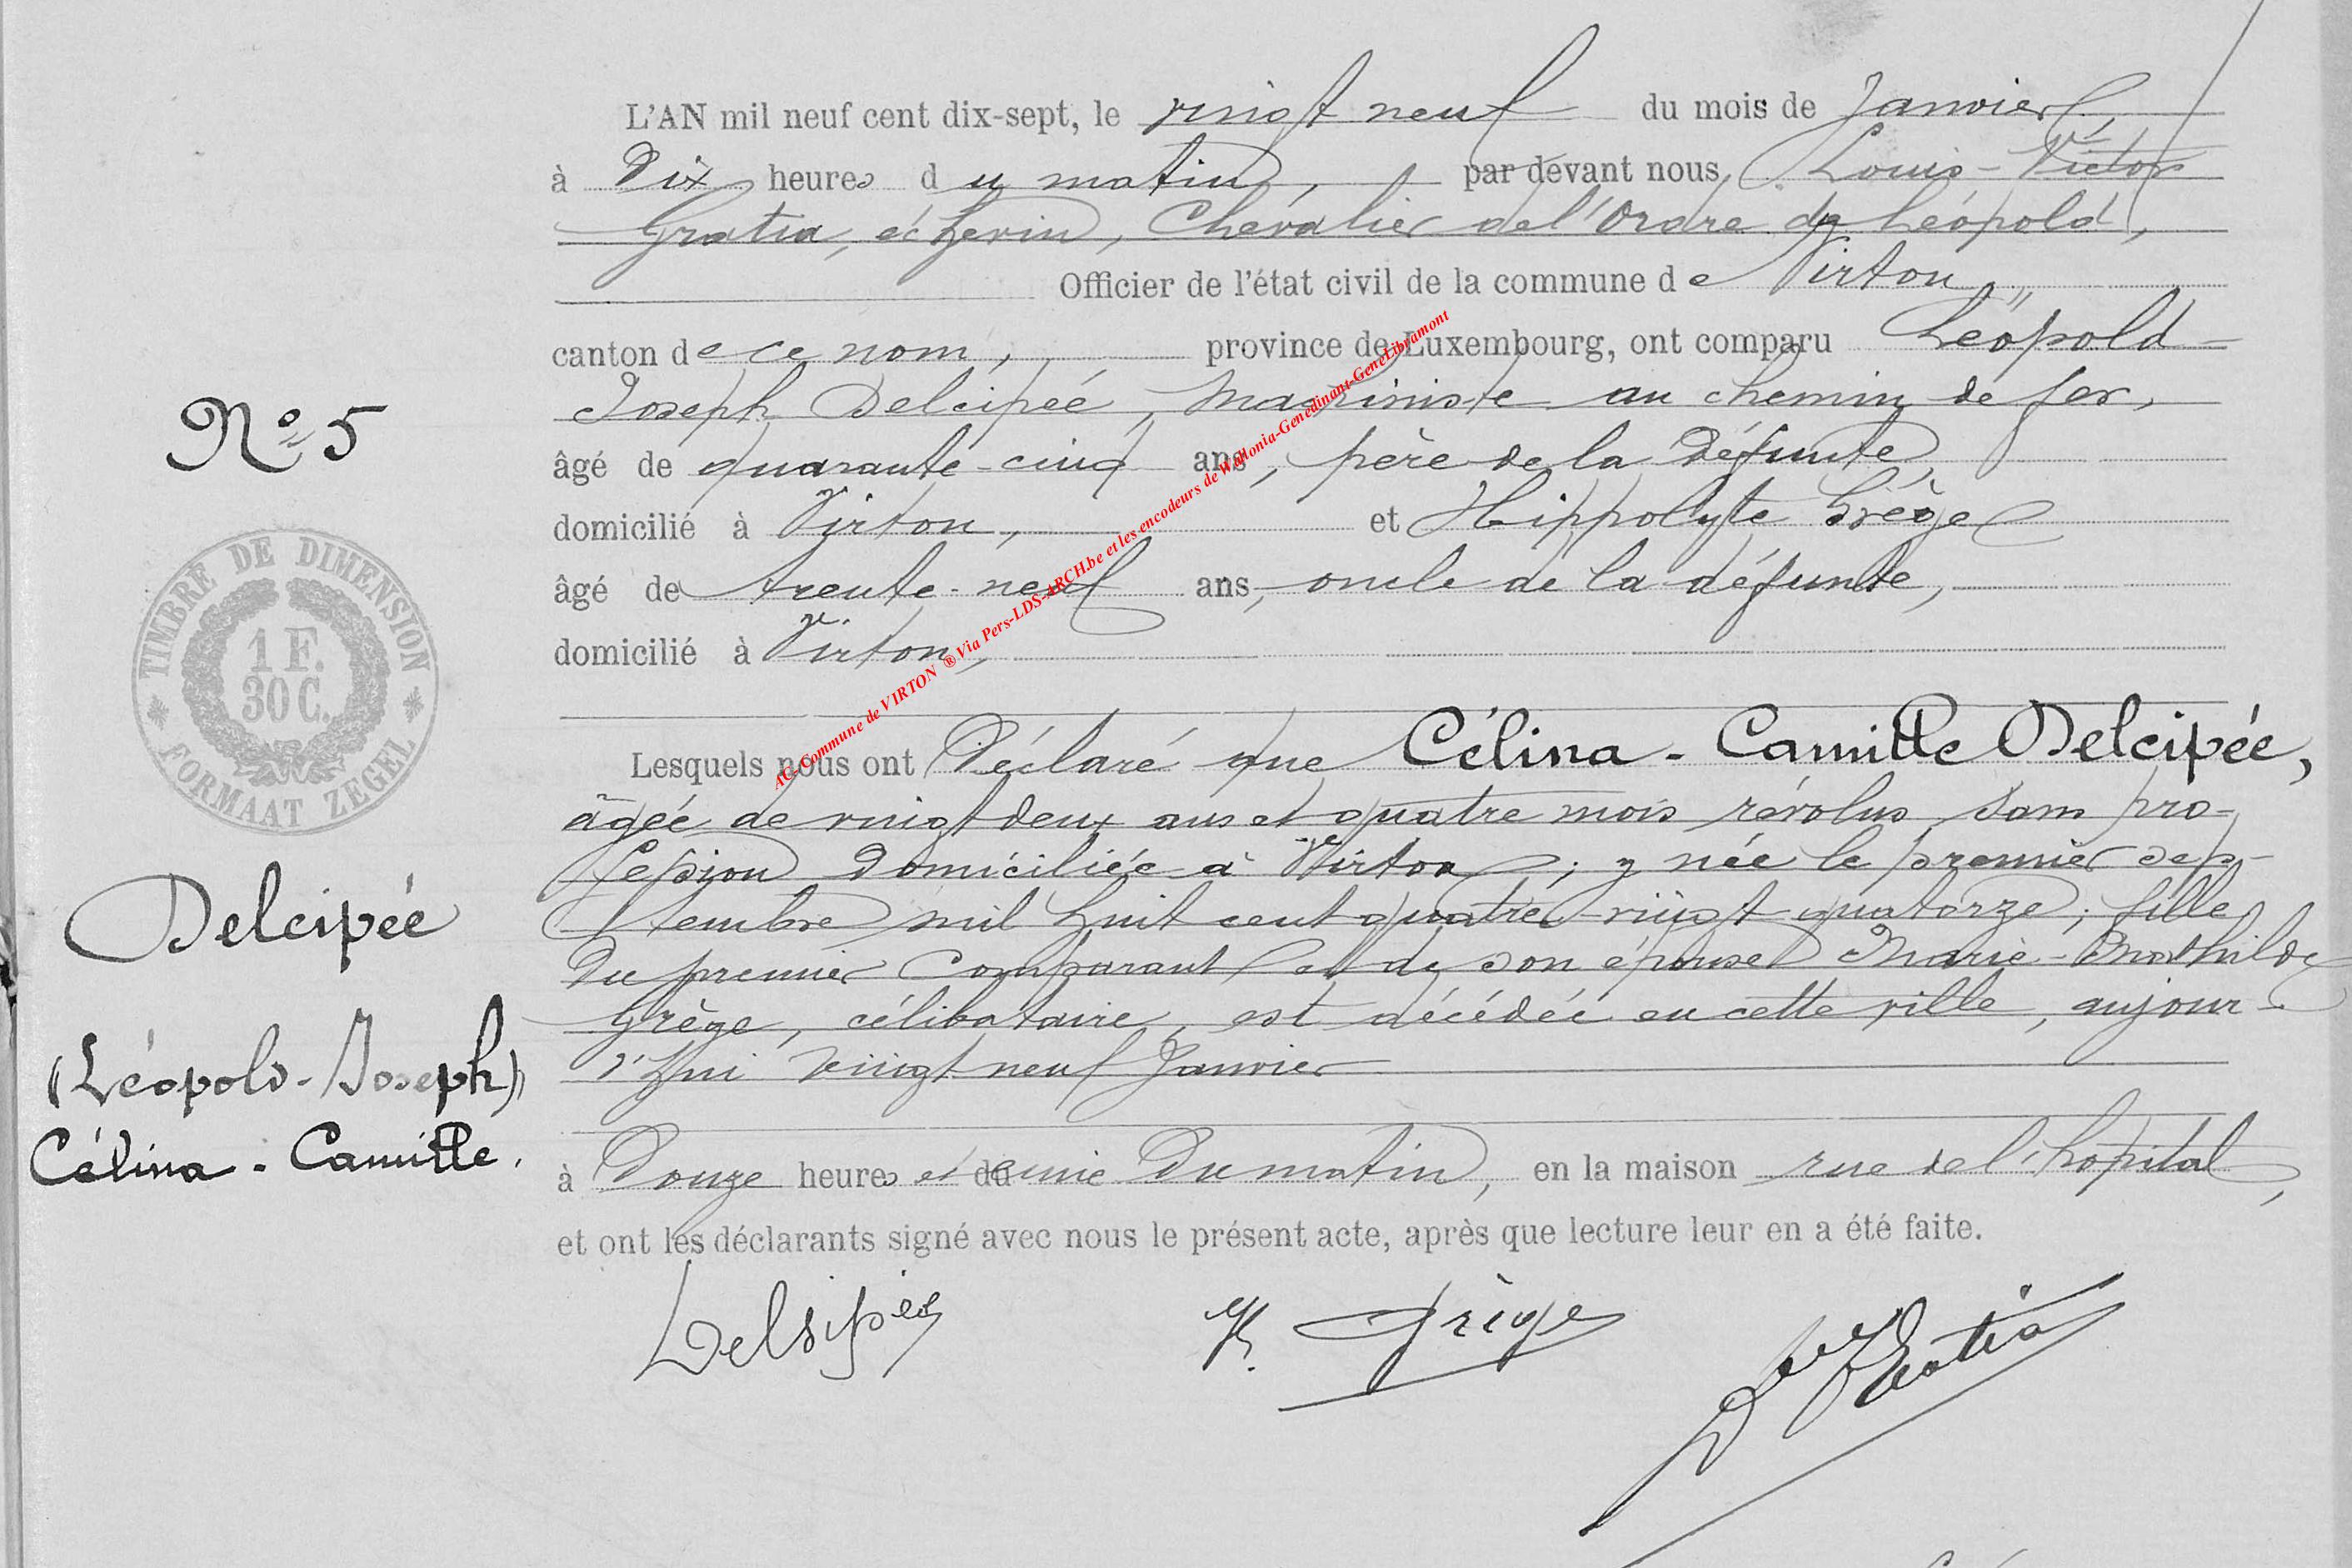 L'AN mil neuf cent dix-sept, le vingt neuf du mois de Janvier,
à Dix heures du matin, par devant nous, Louis-Victor
Gratia, échevin, Chevalier de l'Ordre de Léopold,
Officier de l'état civil de la commune de Virton,
canton de ce nom, province de Luxembourg, ont comparu Léopold-
Joseph Delcipéé, Machiniste au chemin de fer,
âgé de quarante-cinq ans, père de la défunte,
domicilié à Virton, et Hippolyte Grège
âgé de trente-neuf ans, oncle de la défunte,
domicilié à Virton,
Lesquels nous ont Déclaré que Célina-Camille Delcipéé,
âgée de vingt deux ans et quatre mois révolus, sans pro-
fession domiciliée à Virton; y née le premier sep-
tembre mil huit cent quatre-vingt quatorze; fille
Du premier Comparant et de son épouse Marie-Mathilde
Grège, célibataire, est décédée en cette ville, aujour-
d'hui vingt neuf Janvier
à Douze heures et demie Du matin, en la maison rue de l'hôpital,
et ont les déclarants signé avec nous le présent acte, après que lecture leur en a été faite.
Delsipée H. Grège L. V. Gratia
N° 5
TIMBRE DE DIMENSION
1 F.
30 C.
FORMAAT ZEGEL
Delcipéé
(Léopold-Joseph)
Célina-Camille.
AC-Commune de VIRTON ® Via Pers-LDS-ARCH.be et les encodeurs de Wallonia-Genedinant-GeneLibramont